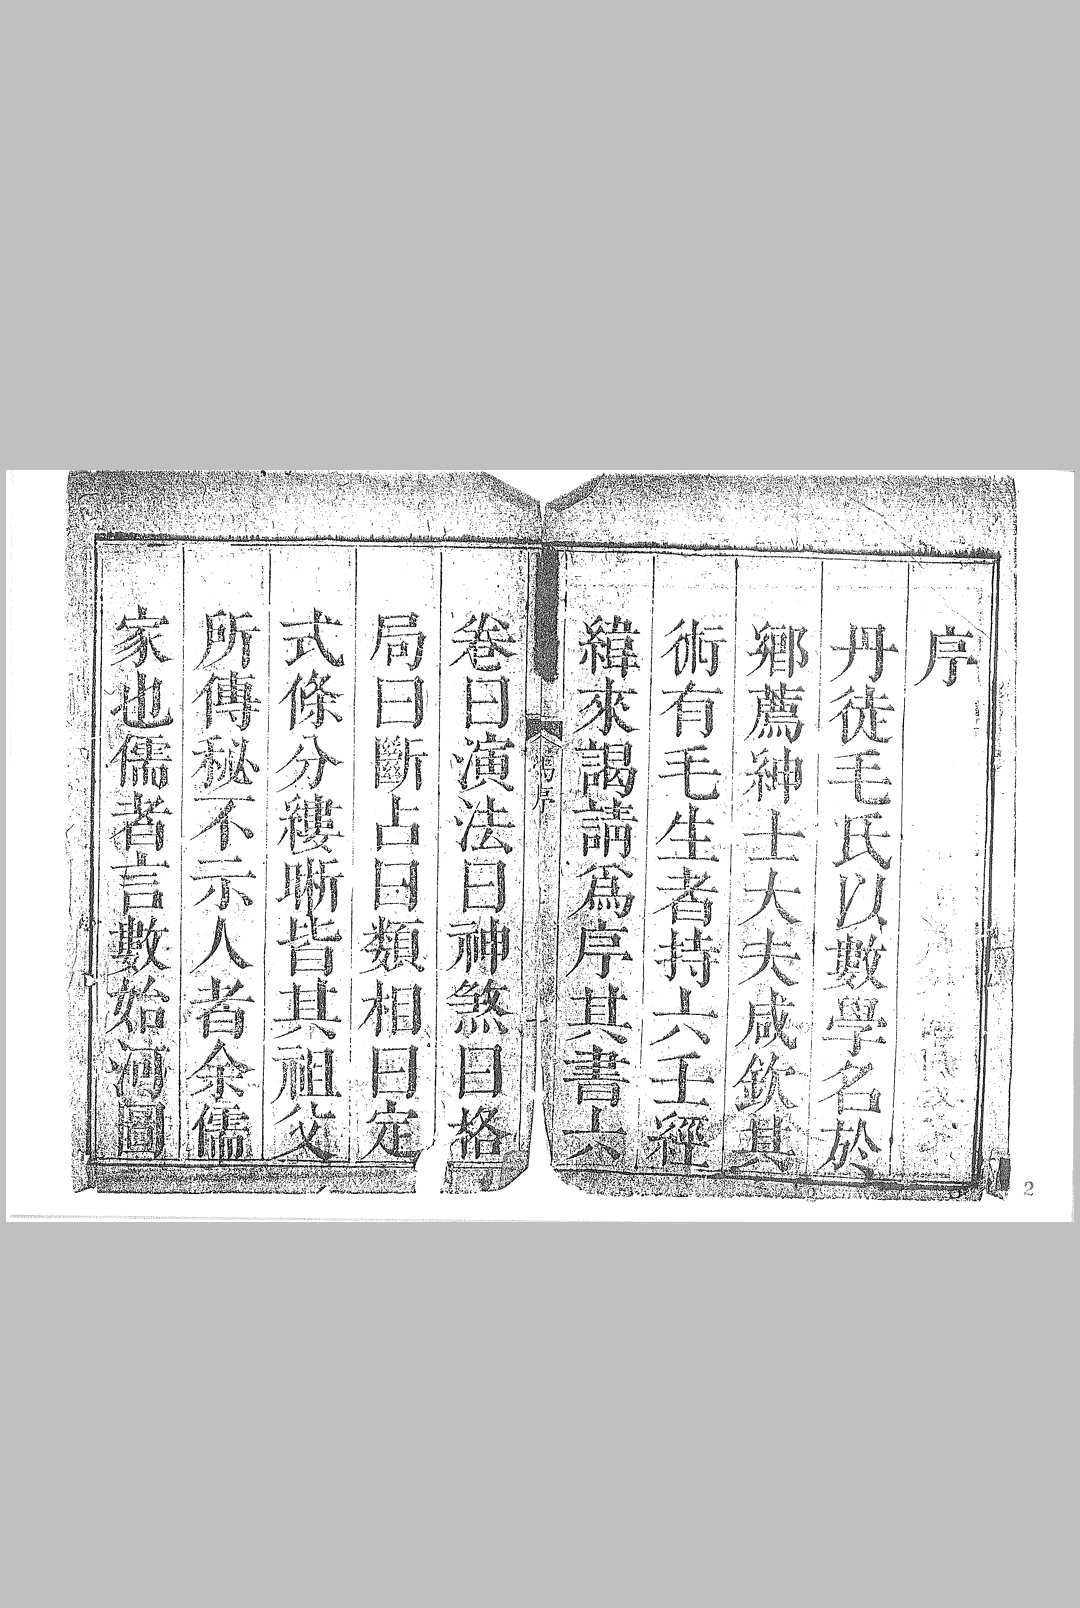 序
丹徒毛氏以數學名於
鄉薦紳士大夫咸欽其
術有毛生者持六壬經
緯來謁請爲序其書六
序
卷曰演法曰神煞曰格
局曰斷占曰類相曰定
式條分縷晰皆其祖父
所傳秘不示人者余儒
家也儒者言數始河圖
2